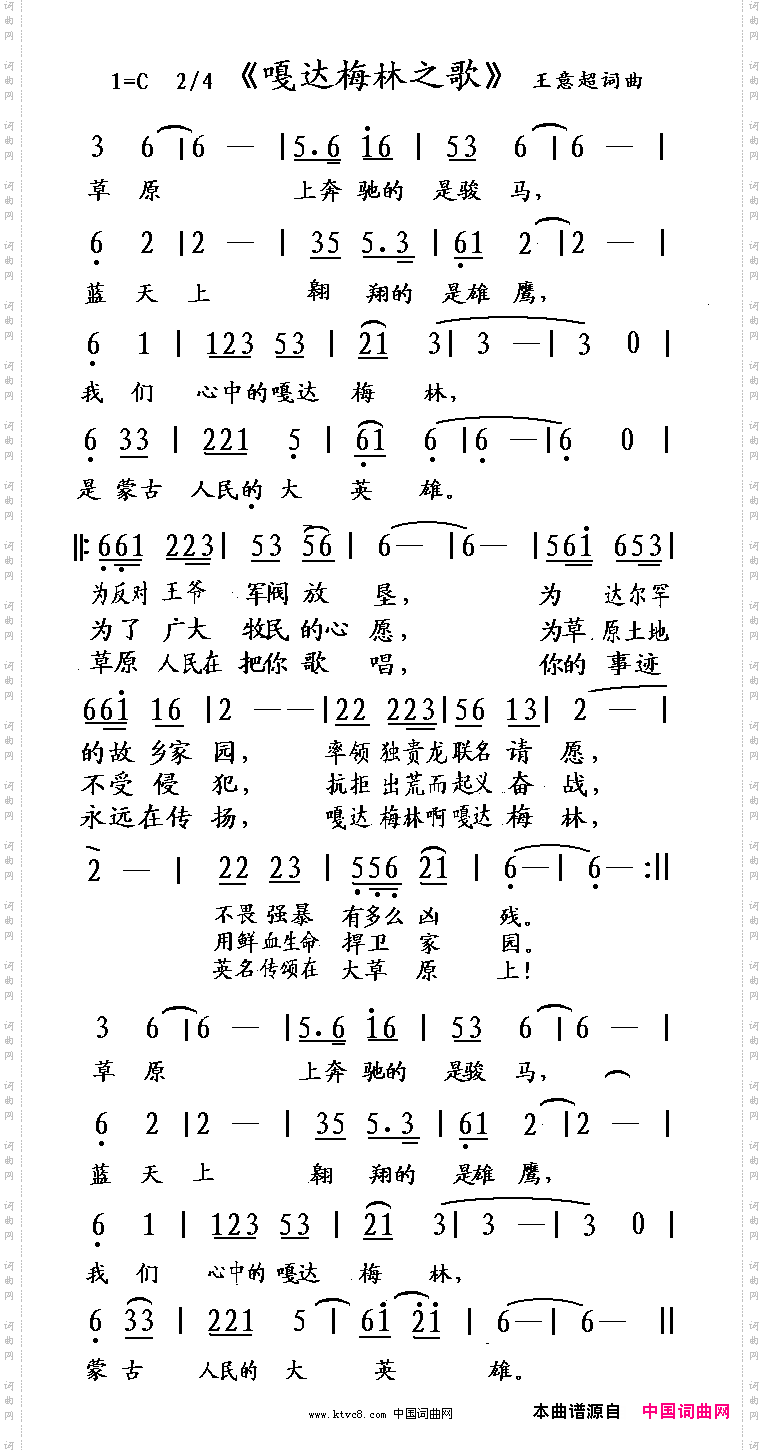 1=C 2/4 《嘎达梅林之歌》 王意超词曲
3 6 | 6 — | 5. 6 i 6 | 5 3 6 | 6 — |
草 原 上奔 驰的 是骏 马，
6 2 | 2 — | 3 5 5. 3 | 6 1 2 | 2 — |
蓝 天 上 翱 翔的 是雄 鹰，
6 1 | 1 2 3 5 3 | 2 1 3 | 3 — | 3 0 |
我 们 心中的嘎达 梅 林，
6 3 3 | 2 2 1 5 | 6 1 6 | 6 — | 6 0 |
是 蒙古 人民的 大 英 雄。
‖: 6 6 1 2 2 3 | 5 3 5 6 | 6 — | 6 — | 5 6 i 6 5 3 |
为反对 王爷 军阀 放 垦， 为 达尔罕
为了 广大 牧民 的心 愿， 为草原土地
草原 人民在 把你 歌 唱， 你的 事迹
6 6 i 1 6 | 2 — — | 2 2 2 2 3 | 5 6 1 3 | 2 — |
的故 乡家 园， 率领 独贵龙联名 请 愿，
不受 侵 犯， 抗拒 出荒而起义 奋 战，
永远在传 扬， 嘎达 梅林啊嘎达 梅 林，
2 — | 2 2 2 3 | 5 5 6 2 1 | 6 — | 6 — :‖
不畏 强暴 有多么 凶 残。
用鲜血生命 捍卫 家 园。
英名传颂在 大草 原 上！
3 6 | 6 — | 5. 6 i 6 | 5 3 6 | 6 — |
草 原 上奔 驰的 是骏 马，
6 2 | 2 — | 3 5 5. 3 | 6 1 2 | 2 — |
蓝 天 上 翱 翔的 是雄 鹰，
6 1 | 1 2 3 5 3 | 2 1 3 | 3 — | 3 0 |
我 们 心中的 嘎达 梅 林，
6 3 3 | 2 2 1 5 | 6 i 2 i | 6 — | 6 — ‖
蒙 古 人民的 大 英 雄。
www.ktvc8.com 中国词曲网 本曲谱源自 中国词曲网